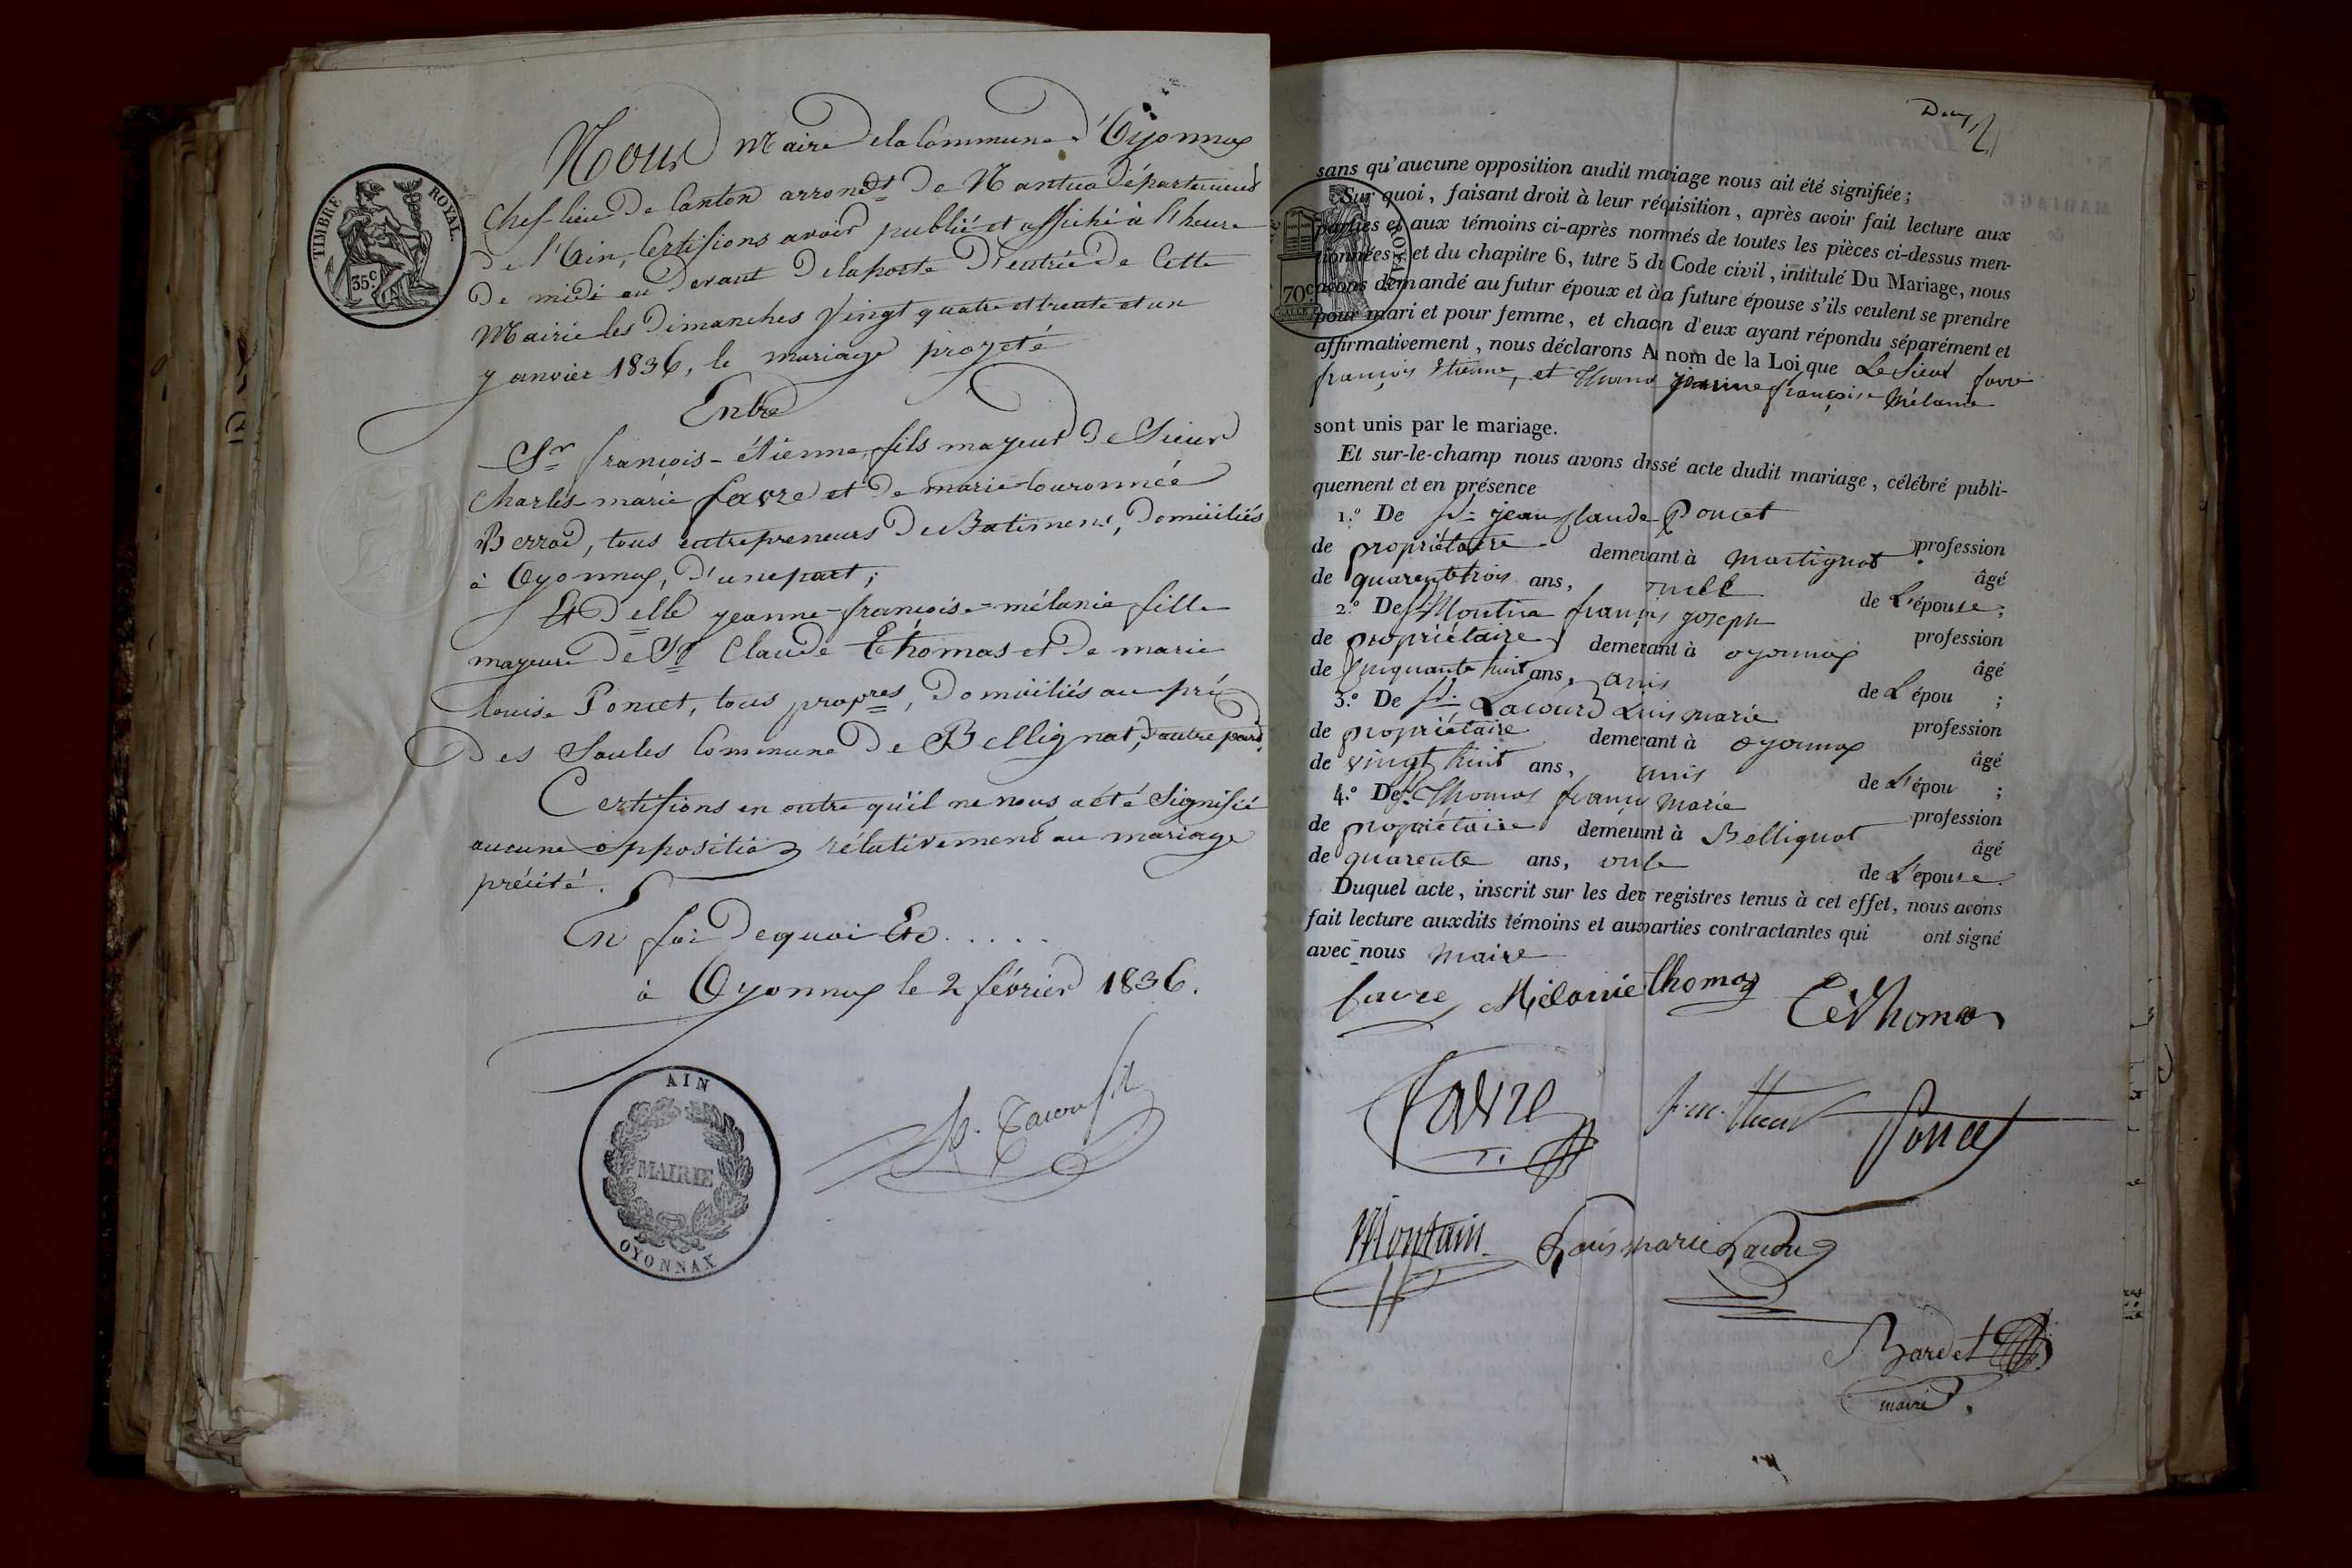 TIMBRE ROYAL.
35c
Nous Maire de la Commune d'Oyonnax
Chef-lieu de Canton arrondt de Nantua Département
de l'Ain, Certifions avoir publié et affiché à l'heure
de midi au devant de la porte d'entrée de Cette
Mairie les Dimanches Vingt quatre et trente et un
janvier 1836, le mariage projeté
Entre
Sr françois-étienne, fils majeur de Sieur
Charles-marie favre et de marie-Couronnée
Berrod, tous entrepreneurs de Batimens, Domiciliés
à Oyonnax, D'une part;
Et Delle jeanne-françoise-mélanie, fille
majeure de Sr Claude Thomas et de marie
Louise Poncet, tous propres, Domiciliés au pré
Des Saules Commune de Bellignat, d'autre part.
Certifions en outre qu'il ne nous a été Signifié
aucune opposition rélativement au mariage
précité.
En foi De quoi Etc.....
à Oyonnax le 2 février 1836.
AIN
MAIRIE
OYONNAX
sans qu'aucune opposition audit maiage nous ait été signifiée;
Sur quoi, faisant droit à leur réquisition, après avoir fait lecture aux
parties et aux témoins ci-après nommés de toutes les pièces ci-dessus men-
tionnées, et du chapitre 6, titre 5 du Code civil, intitulé Du Mariage, nous
avons demandé au futur époux et à a future épouse s'ils veulent se prendre
pour mari et pour femme, et chacn d'eux ayant répondu séparément et
affirmativement, nous déclarons A nom de la Loi que Le Sieur favre
françois Etienne, et Thomas jeanne françoise Mélanie
70c
sont unis par le mariage.
Et sur-le-champ nous avons dressé acte dudit mariage, célébré publi-
quement et en présence
1.º De Sr. jean Claude Poncet profession
de propriétaire demerant à Martignat âgé
de quarente trois ans, oncle de L'épouse;
2.º De Sr Montin françois joseph profession
de propriétaire demerant à oyonnax âgé
de Cinquante huit ans, amis de L'épou ;
3.º De Sr. Lacourd Louis marie profession
de propriétaire demerant à oyonnax âgé
de vingt huit ans, amis de L'épou ;
4.º De Sr. Thomas françois Marie profession
de propriétaire demeurnt à Bellignat âgé
de quarente ans, oncle de L'épouse.
Duquel acte, inscrit sur les dex registres tenus à cet effet, nous avons
fait lecture auxdits témoins et aux parties contractantes qui ont signé
avec nous Maire
favre Mélanie thomas
Ce Thomas
favre
Poncet
Montain
Louis marie Lacour
Bardet
maire